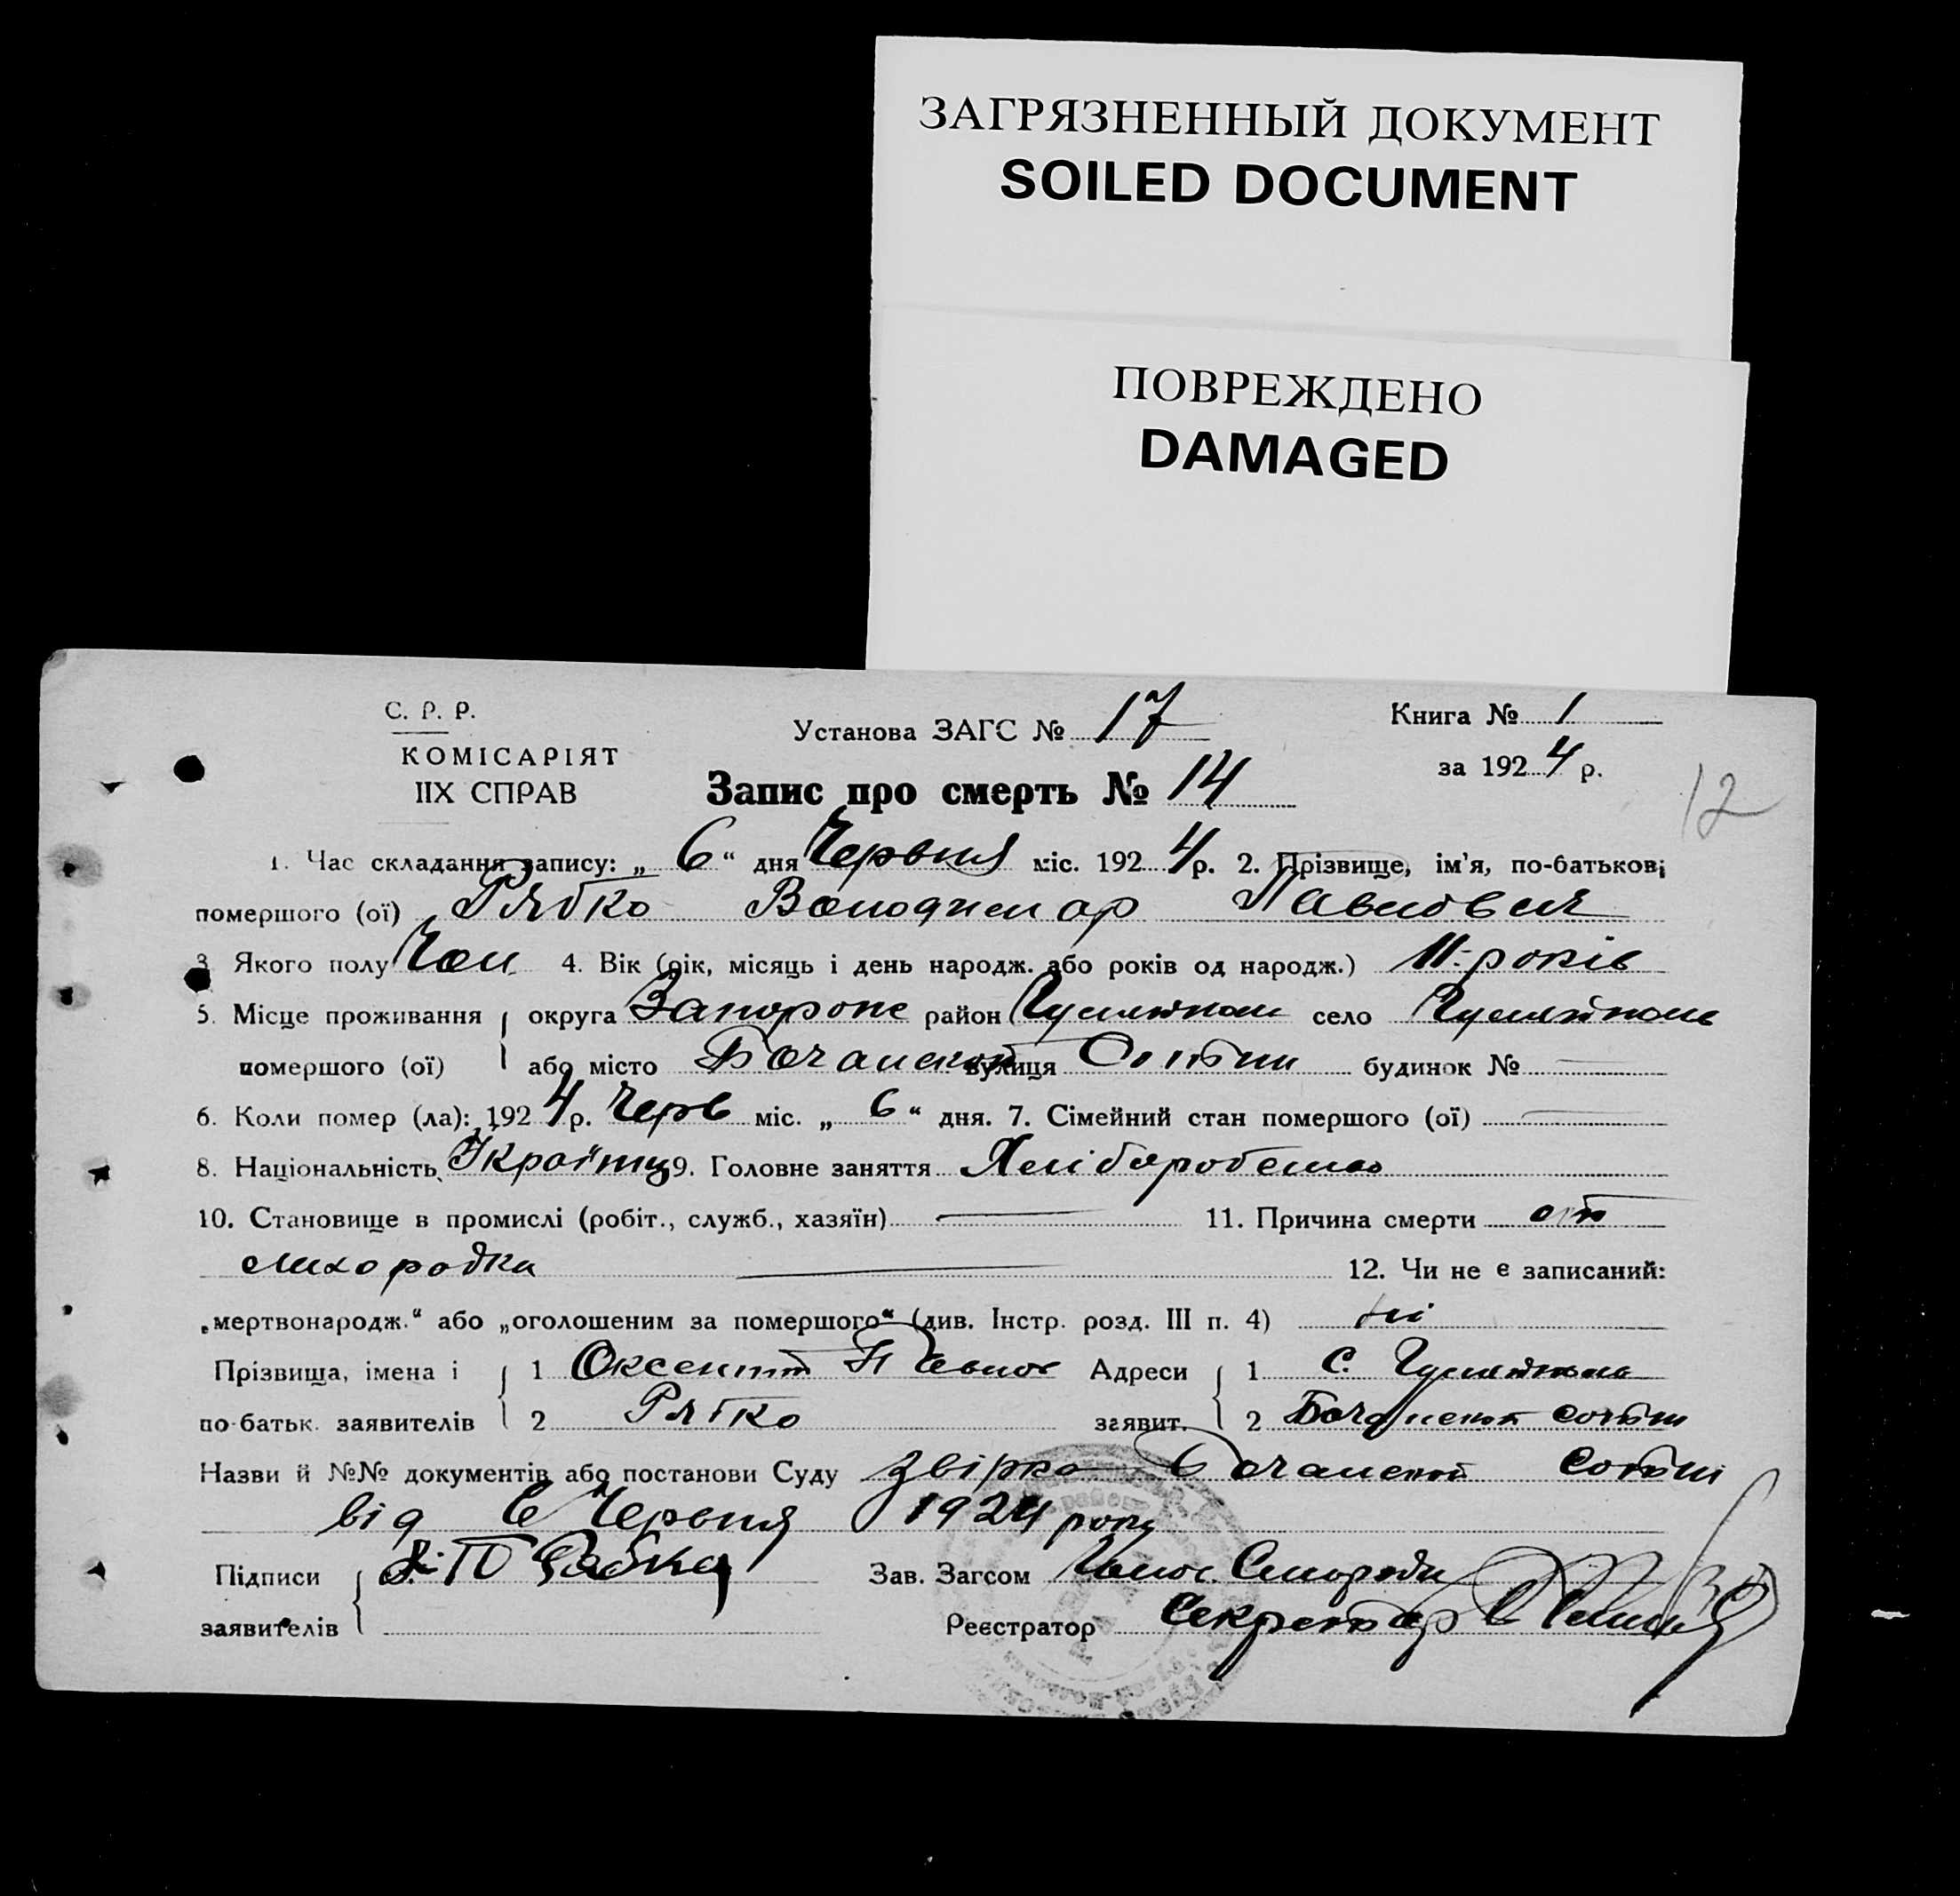 ЗАГРЯЗНЕННЫЙ ДОКУМЕНТ
SOILED DOCUMENT
ПОВРЕЖДЕНО
DAMAGED
С. Р. Р.
КОМІСАРІЯТ
ІІХ СПРАВ
Установа ЗАГС № 17
Книга № 1
за 1924 р.
Запис про смерть № 14
12
1. Час складання запису: „ 6 “ дня Червня міс. 1924 р. 2. Прізвище, ім'я, по-батькові
помершого (ої) Рябко Володимар Павлович
3 Якого полу Чол. 4. Вік (рік, місяць і день народж. або років од народж.) 11 років
5. Місце проживання округа Запорожс район село
помершого (ої) або місто вулиця Сотни будинок №
6. Коли помер (ла): 1924 р. Черв міс. „ 6 “ дня. 7. Сімейний стан помершого (ої)
8. Національність Україниц 9. Головне заняття
10. Становище в промислі (робіт., служб., хазяїн) 11. Причина смерти от
лихорадки 12. Чи не є записаний:
„мертвонародж.“ або „оголошеним за помершого“ (див. Інстр. розд. III п. 4) ні
Прізвища, імена і 1 Оксентий Павлов Адреси 1 С.
по-батьк. заявителів 2 Рябко заявит. 2 сотни
Назви й №№ документів або постанови Суду сотні
від 6 Червня 1924 року
Підписи Рабка Зав. Загсом
заявителів Реєстратор Секретар